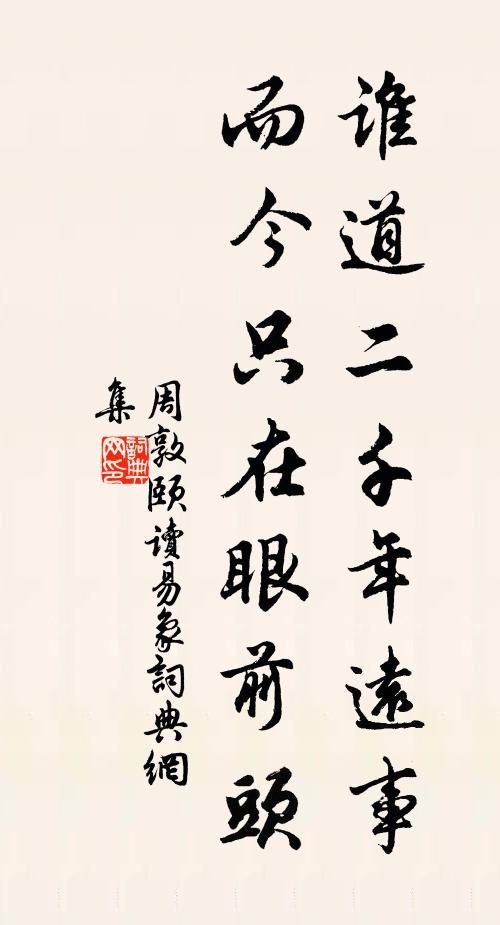 誰道二千年遠事
而今只在眼前頭
周敦頤讀易象詞典網
集
詞典
网印